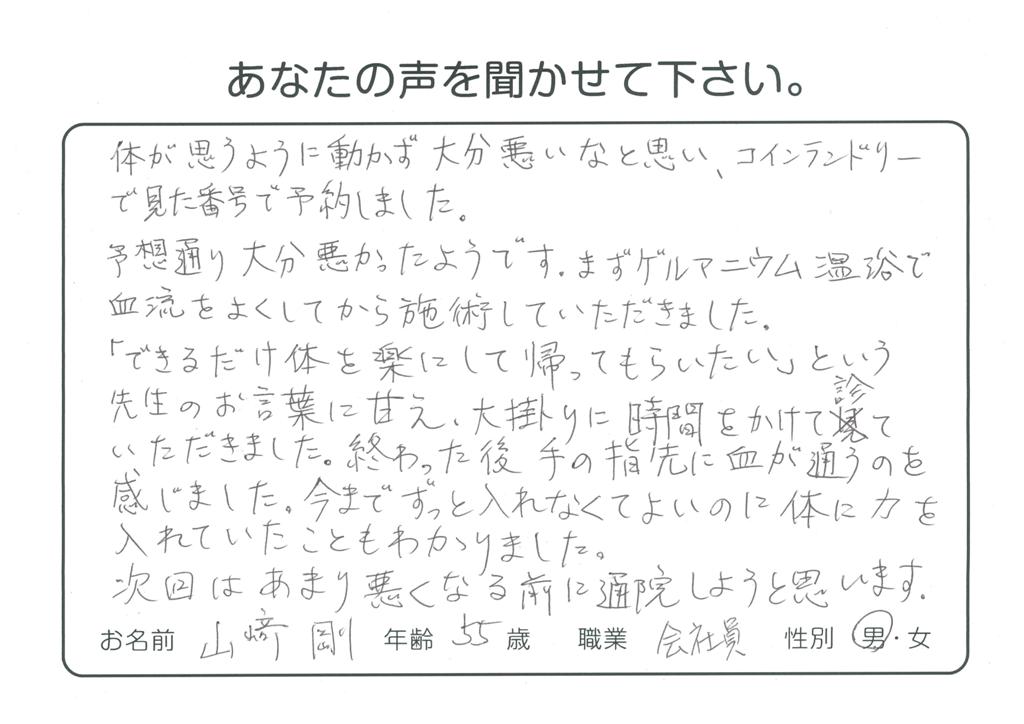 あなたの声を聞かせて下さい。
体が思うように動かず大分悪いなと思い、コインランドリー
で見た番号で予約しました。
予想通り大分悪かったようです。まずゲルマニウム温浴で
血流をよくしてから施術していただきました。
「できるだけ体を楽にして帰ってもらいたい」という
先生のお言葉に甘え、大掛りに時間をかけて診て
いただきました。終わった後手の指先に血が通うのを
感じました。今までずっと入れなくてよいのに体に力を
入れていたこともわかりました。
次回はあまり悪くなる前に通院しようと思います。
お名前 山﨑 剛 年齢 55 歳 職業 会社員 性別 男・女